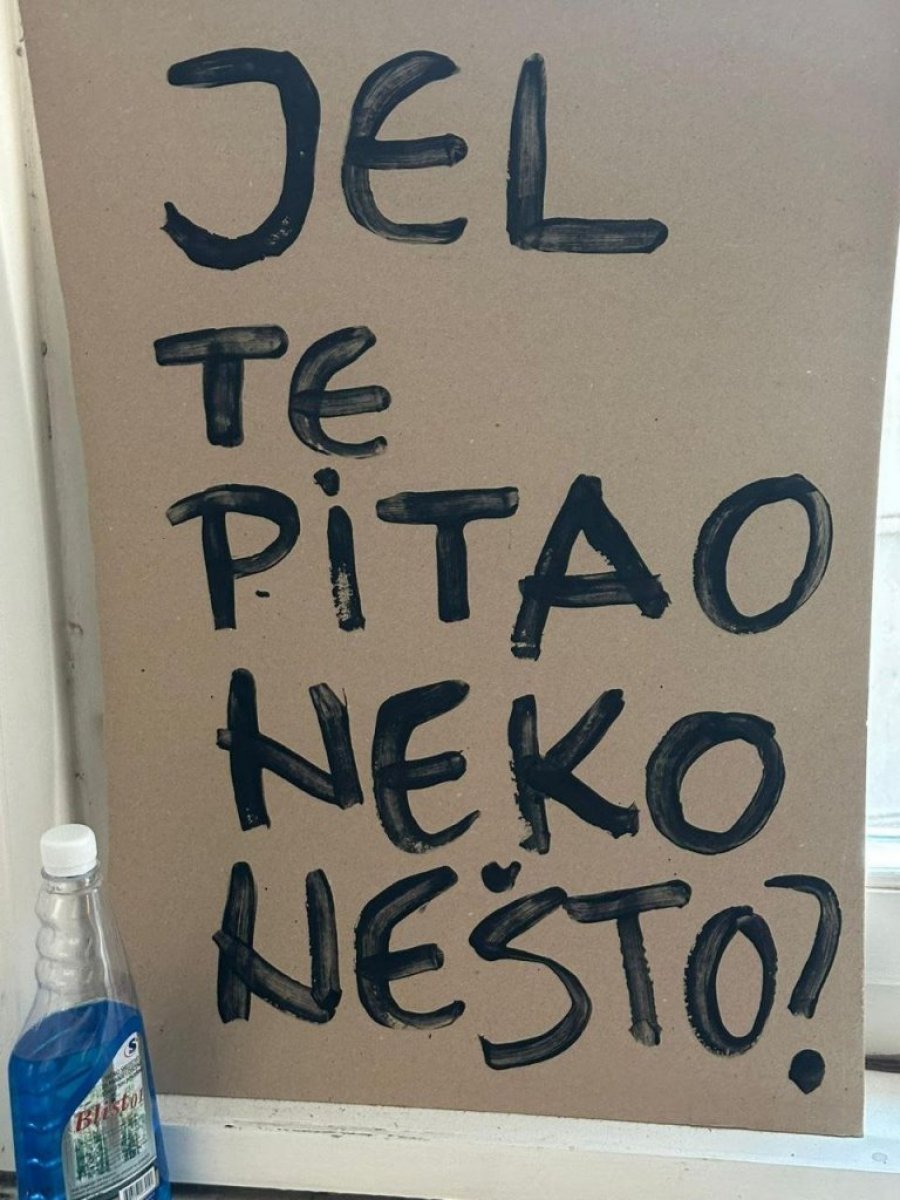 JEL
TE
PITAO
NEKO
NEŠTO?
Blistol